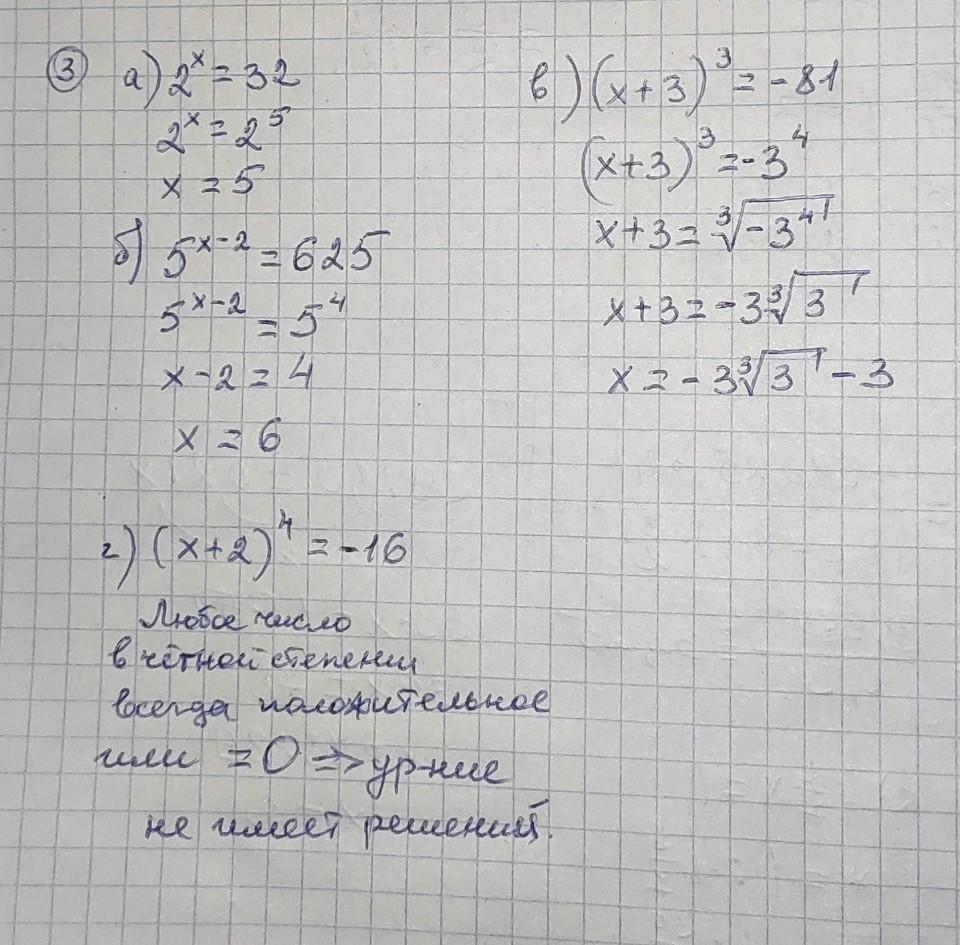 ③ а) 2^x = 32
2^x = 2^5
x = 5
б) 5^(x-2) = 625
5^(x-2) = 5^4
x - 2 = 4
x = 6
в) (x+3)^3 = -81
(x+3)^3 = -3^4
x+3 = ∛(-3^4)
x+3 = -3∛3
x = -3∛3 - 3
г) (x+2)^4 = -16
Любое число
в чётной степени
всегда положительное
или =0 => ур-ние
не имеет решений.